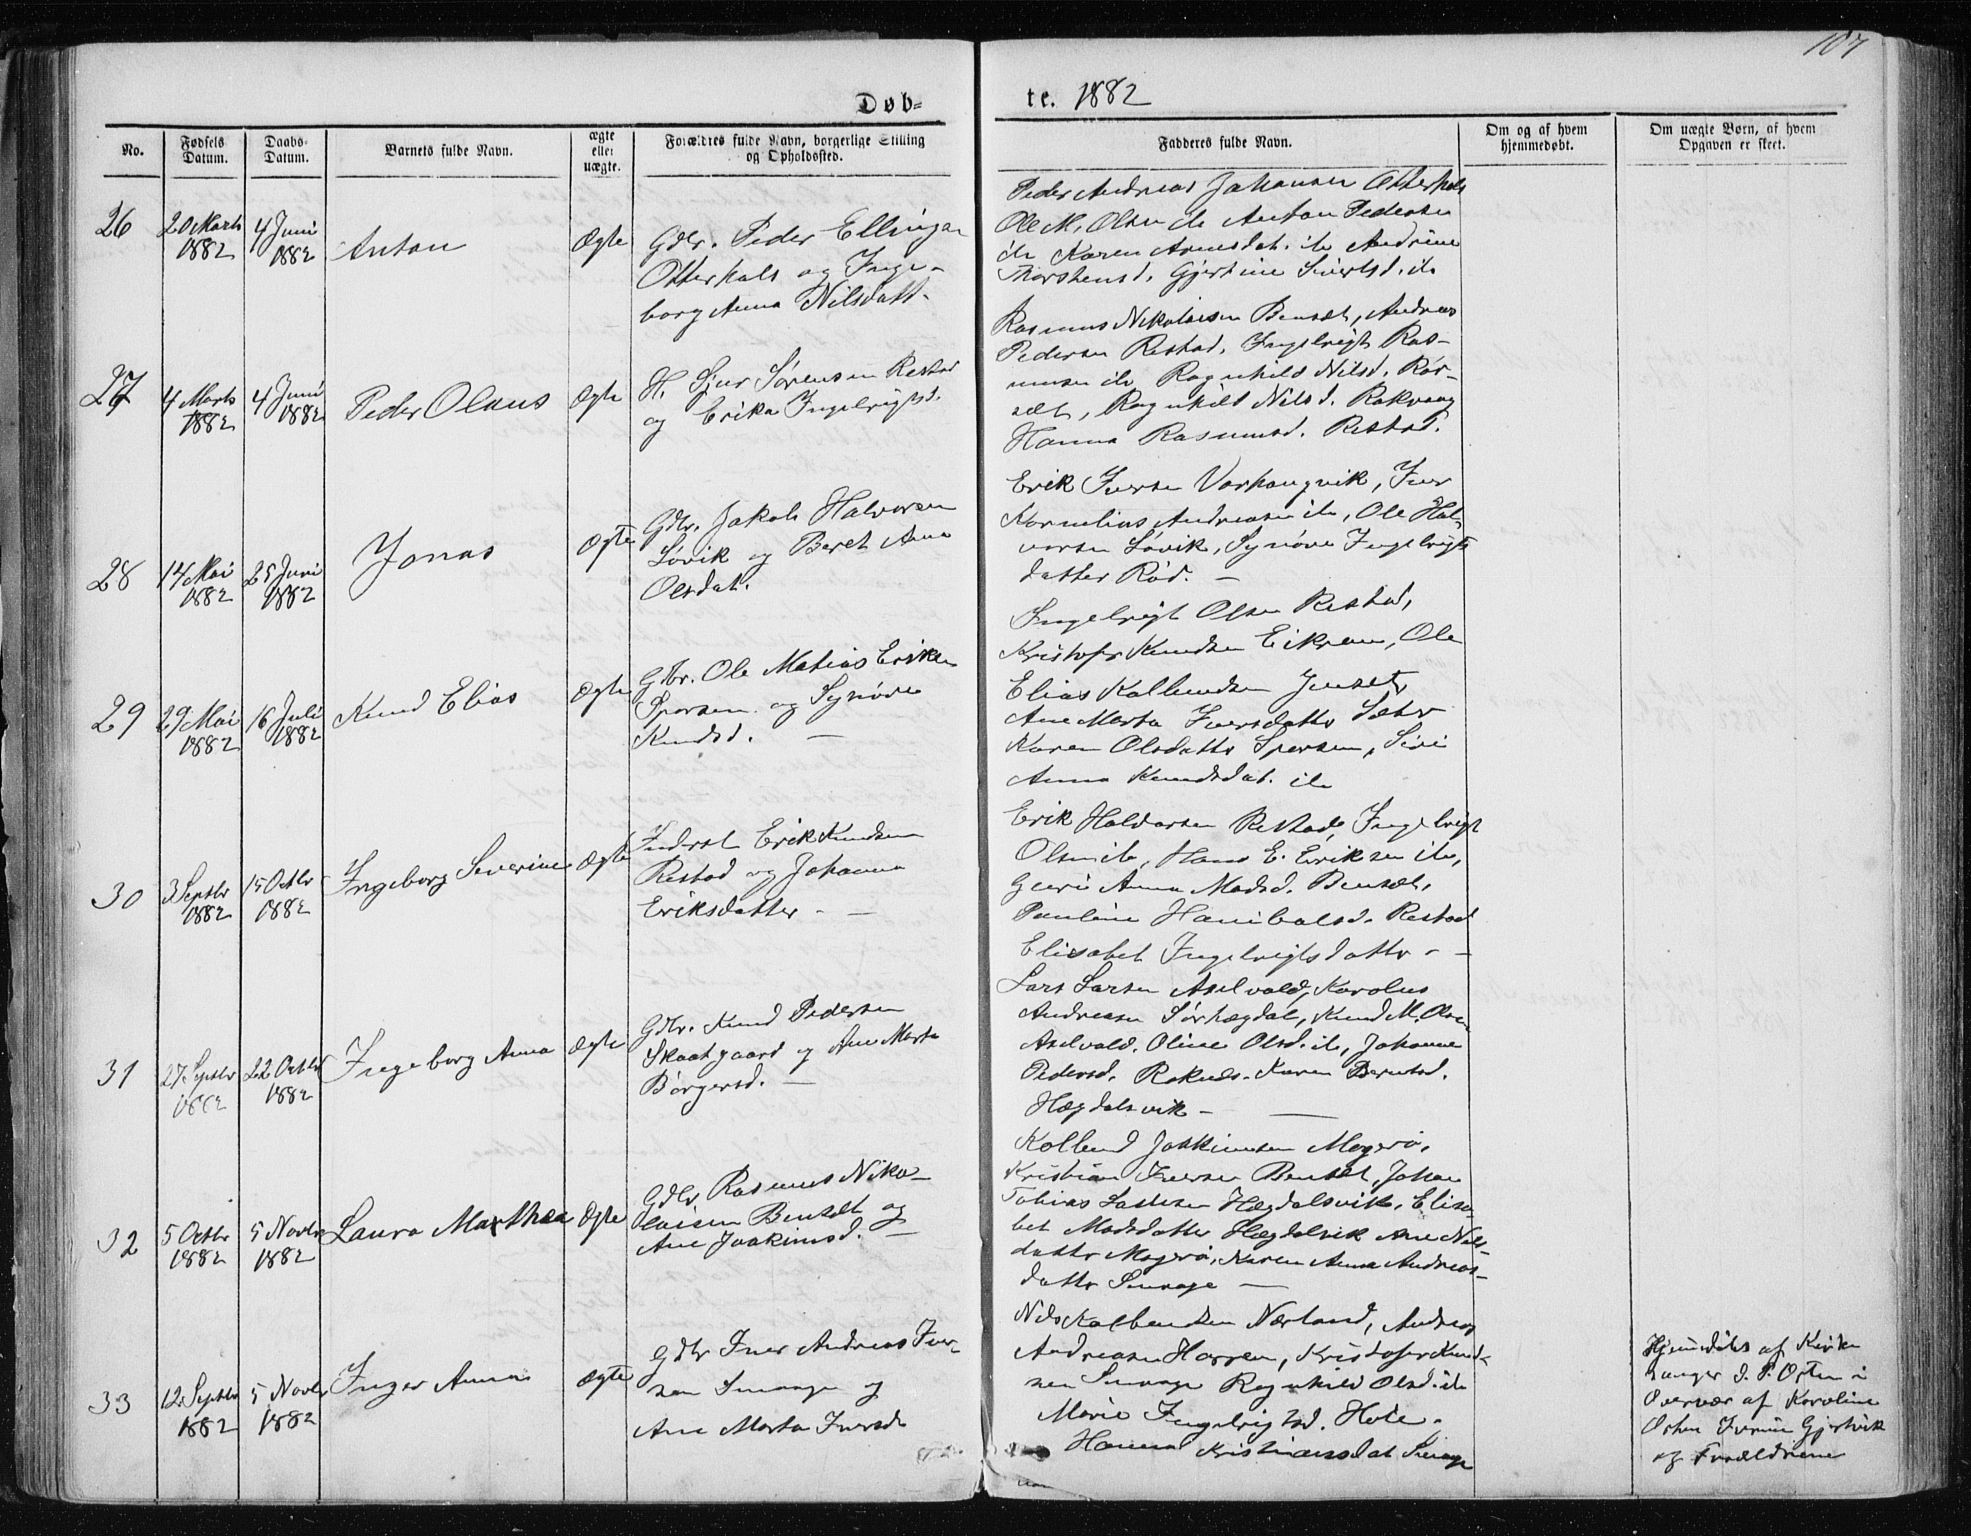 107
Døb=
te. 1882
No.
Fødsels Datum.
Daabs- Datum.
Barnets fulde Navn.
ægte eller uægte.
Forældres fulde Navn, borgerlige Stilling og Opholdssted.
Fadderes fulde Navn.
Om og af hvem hjemmedøbt.
Om uægte Børn, af hvem Opgaven er skeet.
26
20 Marts 1882
4 Juni 1882
Anton
Ægte
Gdbr. Peder Ellingsen
Otterhals og Inge-
borg Anna Nilsdatt.
Peder Andreas Johansen Otterhals
Ole M. Olsen do Anton Pedersen
do Karen Arnesdat. do Andrine
Thorstensd. Gjertine Sivertsd. do
27
4 Marts 1882
4 Juni 1882
Peder Olaus
Ægte
H. Sjur Sørensen Restad
og Erika Ingelrigtsd.
Rasmus Nikolaisen Bensæt, Andreas
Pedersen Restad, Ingelrigt Ras-
musen do Ragnhild Nilsd. Rør-
sæt, Ragnhild Nilsd. Rakvaag
Hanna Rasmusd. Restad.
28
14 Mai 1882
25 Juni 1882
Jonas
Ægte
Gdbr. Jakob Halvorsen
Løvik og Beret Ane
Olsdat.
Erik Iversen Varhaugvik, Iver
Kornelius Andreasen do, Ole Hal-
vorsen Løvik, Synøve Ingelrigts
datter Rød. —
29
29 Mai 1882
16 Juli 1882
Knud Elias
Ægte
Gbr. Ole Matias Eriksen
Sporsem og Synøve
Knudsd. —
Ingelrigt Olsen Restad,
Kristofer Knudsen Eikrem, Ole
Elias Kolbendsen Jenset,
Ane Marta Iversdatter Sæter
Karen Olsdatter Sporsem, Siri
Anna Knudsdat. do
30
3 Septbr 1882
15 Octbr 1882
Ingeborg Severine
Ægte
Inderst Erik Knudsen
Restad og Johanna
Eriksdatter. —
Erik Haldorsen Restad, Ingelrigt
Olsen do, Hans E. Eriksen do,
Guri Anna Madsd. Bensæt,
Pauline Hanibalsd. Restad
Elisabet Ingelrigtsdatter - -
31
27 Septbr 1882
22 Octbr 1882
Ingeborg Anna
Ægte
Gdbr. Knud Pedersen
Skaatgaard og Ane Marta
Børgersd. —
Lars Larsen Aselvold, Karolus
Andreasen Sørhægdal, Knud M. Olsen
Aselvold. Oline Olsd. do, Johanne
Pedersd. Raknes. Karen Berntsd.
Hægdalsvik —
32
5 Octbr 1882
5 Novbr 1882
Laura Marthea
Ægte
Gdbr Rasmus Niko-
laisen Bensæt og
Ane Joakimsd. —
Kolbend Joakimsen Magerø,
Kristian Iversen Bensæt, Johan
Tobias Hægdalsvik, Elisa-
bet Madsdatter Hægdalsvik Ane Nils-
datter Magerø, Karen Anna Andreas-
datter Smaage —
33
12 Septbr 1882
5 Novbr 1882
Inger Anna
Ægte
Gdbr Iver Andreas Iver-
sen Smaage og
Ane Marta Iversd.
Nils Kolbendsen Nærland, Andreas
Andreasen Harrem, Kristofer Knud-
sen Smaage Ragnhild Olsd. do
Marie Ingelrigtsd. Hole.
Hanna Kristiansdat Smaage
Hjemdøbt af Kirke
sanger J. P. Osten i
Nærvær af Karoline
Osten Gjertvik
og Forældrene